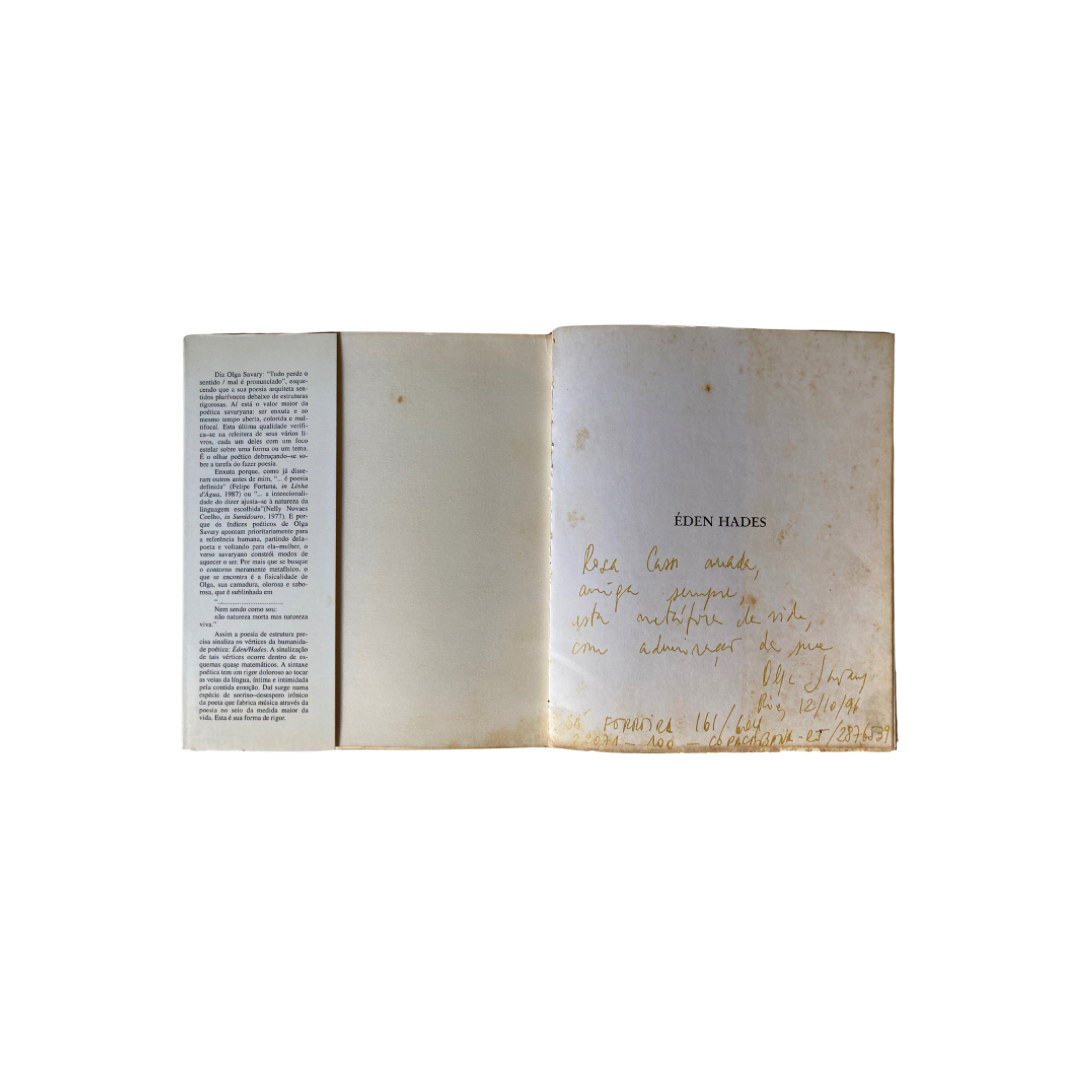 Diz Olga Savary: "Tudo perde o
sentido / mal é pronunciado", esque-
cendo que a sua poesia arquiteta sen-
tidos plurívocos debaixo de estruturas
rigorosas. Aí está o valor maior da
poética savaryana: ser enxuta e ao
mesmo tempo aberta, colorida e mul-
tifocal. Esta última qualidade verifi-
ca-se na releitura de seus vários li-
vros, cada um deles com um foco
estelar sobre uma forma ou um tema.
É o olhar poético debruçando-se so-
bre a tarefa do fazer poesia.
Enxuta porque, como já disse-
ram outros antes de mim, "... é poesia
definida" (Felipe Fortuna, in Linha
d'Água, 1987) ou "... a intencionali-
dade do dizer ajusta-se à natureza da
linguagem escolhida"(Nelly Novaes
Coelho, in Sumidouro, 1977). E por-
que os índices poéticos de Olga
Savary apontam prioritariamente para
a referência humana, partindo dela-
poeta e voltando para ela-mulher, o
verso savaryano constrói modos de
aquecer o ser. Por mais que se busque
o contorno meramente metafísico, o
que se encontra é a fisicalidade de
Olga, sua carnadura, olorosa e sabo-
rosa, que é sublinhada em
"..............................
Nem sendo como sou:
não natureza morta mas natureza
viva."
Assim a poesia de estrutura pre-
cisa sinaliza os vértices da humanida-
de poética: Éden/Hades. A sinalização
de tais vértices ocorre dentro de es-
quemas quase matemáticos. A sintaxe
poética tem um rigor doloroso ao tocar
as veias da língua, íntima e intimidada
pela contida emoção. Daí surge numa
espécie de sorriso-desespero irônico
da poeta que fabrica música através da
poesia no seio da medida maior da
vida. Esta é sua forma de rigor.
ÉDEN HADES
Rosa Cass amada,
amiga sempre,
esta metáfora da vida,
com admiração da sua
Olga Savary
Rio, 12/10/96
SÁ FERREIRA 161/
22071-100 - COPACABANA-RJ/2876539